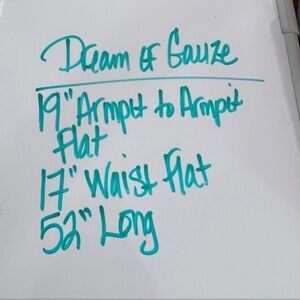 Dream of Gauze
19" Armpit to Armpit
Flat
17" Waist Flat
52" Long